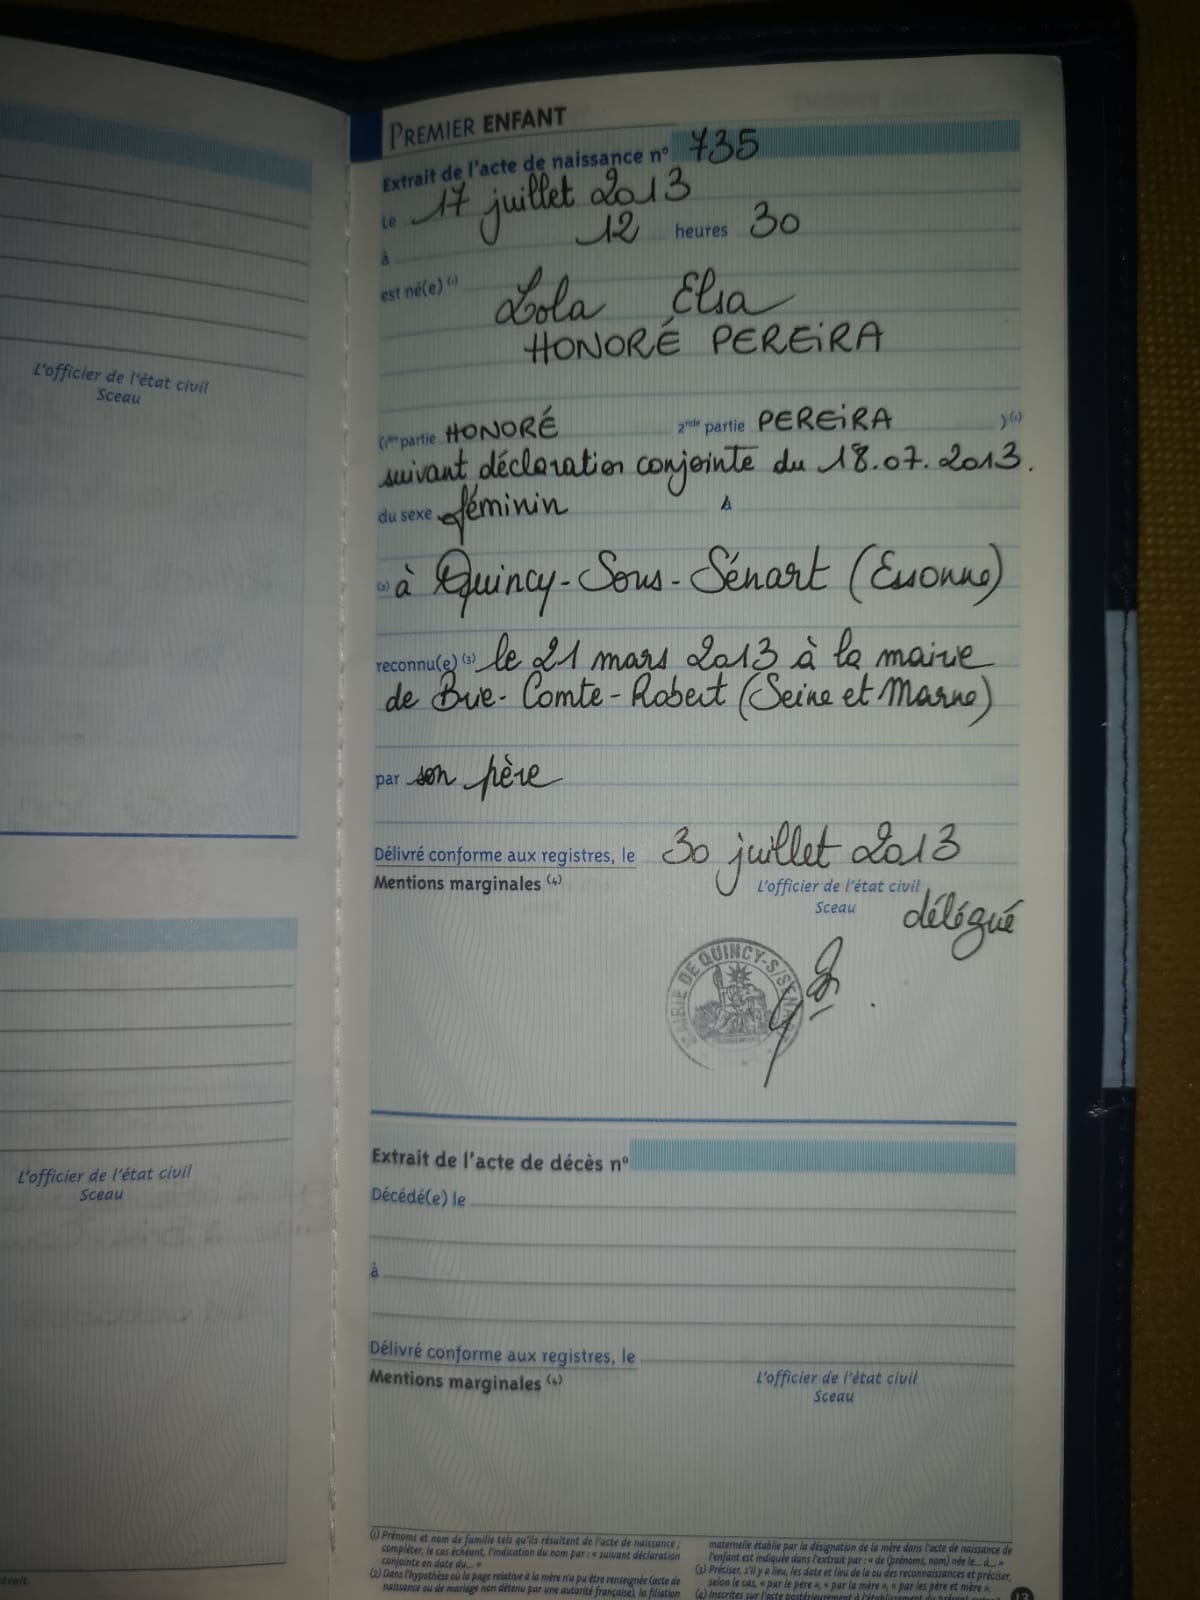 L'officier de l'état civil
Sceau
L'officier de l'état civil
Sceau
trait.
PREMIER ENFANT
Extrait de l'acte de naissance n° 735
Le 17 juillet 2013
à 12 heures 30
est né(e) (1) Lola Elsa
HONORÉ PEREIRA
(1ère partie HONORÉ 2nde partie PEREIRA )(1)
suivant déclaration conjointe du 18.07.2013.
du sexe féminin
(2) à Quincy-Sous-Sénart (Essonne)
reconnu(e) (3) le 21 mars 2013 à la mairie
de Brie-Comte-Robert (Seine et Marne)
par son père
Délivré conforme aux registres, le 30 juillet 2013
Mentions marginales (4) L'officier de l'état civil
Sceau délégué
MAIRIE DE QUINCY-S/SÉNART
Extrait de l'acte de décès n°
Décédé(e) le
à
Délivré conforme aux registres, le
Mentions marginales (4) L'officier de l'état civil
Sceau
(1) Prénoms et nom de famille tels qu'ils résultent de l'acte de naissance ;
compléter, le cas échéant, l'indication du nom par : « suivant déclaration
conjointe en date du... »
(2) Dans l'hypothèse où la page relative à la mère n'a pu être renseignée (acte de
naissance ou de mariage non détenu par une autorité française), la filiation
maternelle établie par la désignation de la mère dans l'acte de naissance de
l'enfant est indiquée dans l'extrait par : « de (prénoms, nom) née le... à... »
(3) Préciser, s'il y a lieu, les date et lieu de la ou des reconnaissances et préciser,
selon le cas, « par le père », « par la mère », « par les père et mère ».
(4) Inscrites sur l'acte postérieurement à l'établissement du présent
13